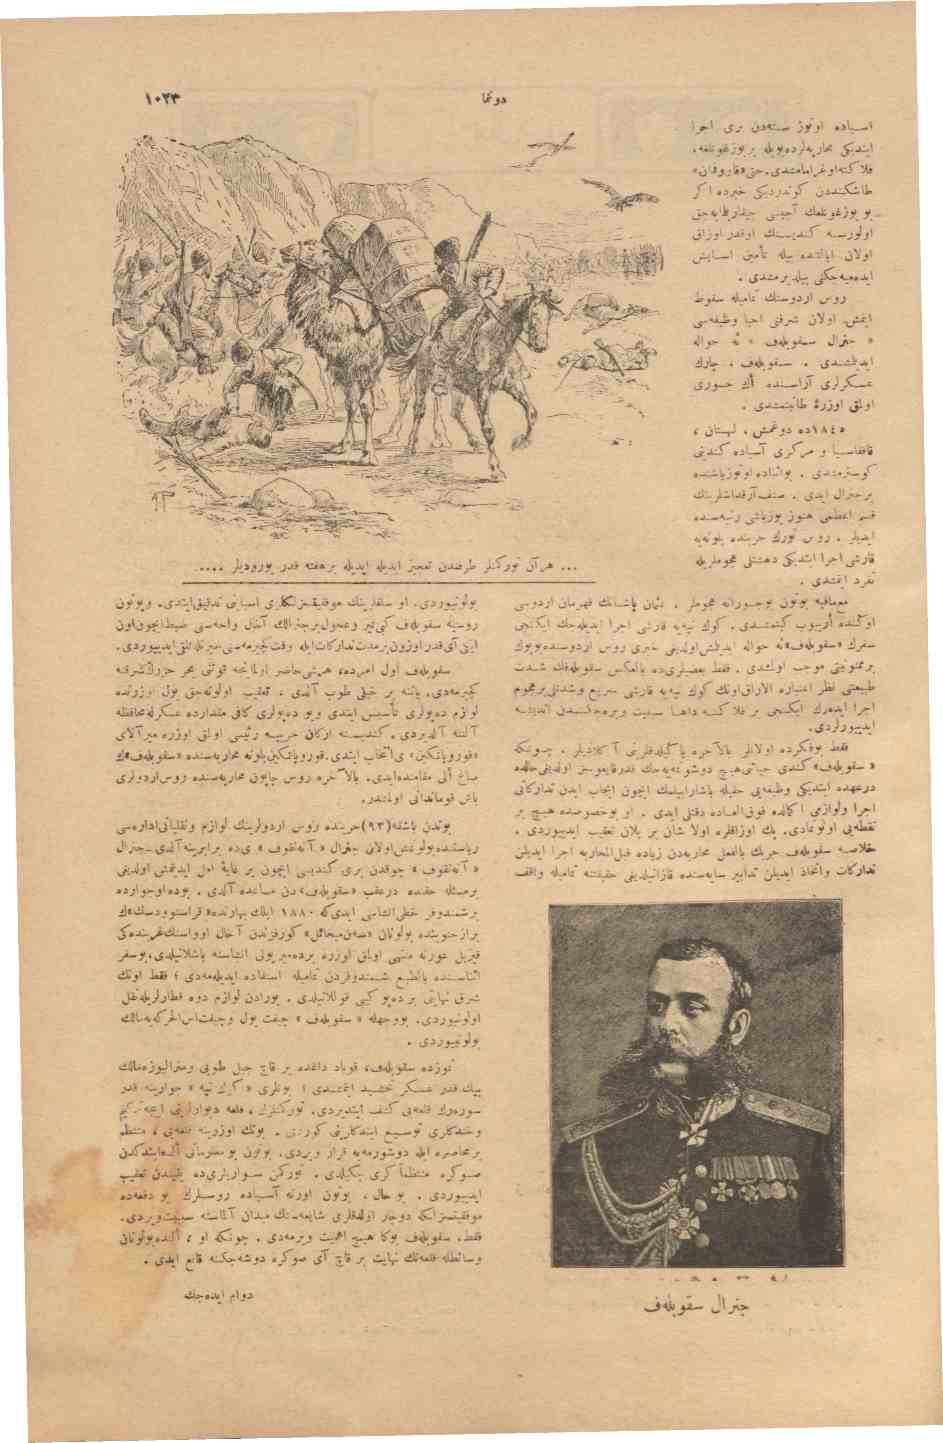 دوننما
١٠٢٣
آسیاده اوتوز سنه‌دن بری اجرا
ایتدیکی محاربه‌لرده بویله بر بوزغونلغه،
فلاکته اوغرامامشدی. حتی «قاوفمان»
طاشکنددن کوندردیکی خبرده اکر
بو بوزغونلغك آجیسی چیقارطلمه‌جق
اولورسه کندیسنك اوقدر اوزاق
اولان ایالتنده بیله تأمین آسایش
ایده‌میه‌جکنی بیلدیرمشدی.
روس اردوسنك تمامیله سقوط
ایتمش اولان شرفنی احیا وظیفه‌سی
« جنرال سقوبله‌ف » ه حواله
ایدلمشدی . سقوبله‌ف ، چارك
عسکرلری آراسنده اك جسوری
اولمق اوزره طانینمشدی .
١٨٤٥ده دوغمش ، لهستان ،
قافقاسیا و مرکزی آسیاده کندینی
کوسترمشدی . بو اثناده اوتوز یاشنده
بر جنرال ایدی . صنف آرقداشلرینك
قسم اعظمی هنوز یوزباشی رتبه‌سنده
ایدیلر . روس تورك حربنده پلونه‌یه
قارشی اجرا ایتدیکی دهشتلی هجوملریله
تفرد ایتمشدی .
... هر آن تورکمنلر طرفندن تعجیز ایدیله ایدیله بر هفته قدر یورودیلر ....
مع‌مافیه بوتون بو جسورانه هجوملر ، عثمان پاشانك قهرمان اردوسی
اوکنده اریوب کیتمشدی. کوك تپه‌یه قارشی اجرا ایدیله‌جك ایکنجی
سفرك «سقوبله‌ف»ه حواله ایدلمش اولدیغی خبری روس اردوسنده بویوك
بر ممنونیتی موجب اولمشدی . فقط بعضیلری ده بالعکس سقوبله‌فك شدت
طبیعتی نظر اعتباره الارق اونك کوك تپه‌یه قارشی سریع وشدتلی بر هجوم
اجرا ایده‌رك ایکنجی بر فلاکته داها سبیت ویره‌جکندن اندیشه
ایدییورلردی.
فقط بو فکرده اولانلر بالآخره یاکیلدقلرینی آکلادیلر . چونکه
« سقوبله‌ف » کندی حیاتنی هیچ دوشونمه‌یه‌جك قدر قایغوسز اولدیغی حالده
درعهده ایتدیکی وظیفه‌یی حقیله باشارابیلمك ایچون ایجاب ایدن تدارکاتی
اجرا ولوازمی اکمالده فوق‌العاده دقتلی ایدی . او بو خصوصده هیچ بر
نقطه‌یی اونوتمازدی. پك اوزاقلره اولاشان بر پلان تعقیب ایدییوردی .
خلاصه سقوبله‌ف حربك بالفعل محاربه‌دن زیاده قبل‌المحاربه اجرا ایدیلن
تدارکات واتخاذ ایدیلن تدابیر سایه‌سنده قازانیلدیغی حقیقتنه تمامیله واقف
جنرال سقوبله‌ف
بولونیوردی. او سلفلرینك موفقیتسزلکلری اسبابنی تدقیق ایتدی. وبوتون
سقوبله‌ف اول امرده، هر شی حاضر اولمانجه قوتنی بحر خزرك شرقنه
کچیرمه‌دی. یاننه بر خیلی طوب آلدی ، تعقیب اولونه‌جق یول اوزرنده
لوازم ده‌پولری تأسیس ایتدی وبو ده‌پولری کافی مقدارده عسکرله محافظه
آلتنه آلدیردی. کندیسنه ارکان حربیه رئیسی اولمق اوزره میرآلای
«قوروپاتکین» ی انتخاب ایتدی. قوروپاتکین پلونه محاربه‌سنده «سقوبله‌ف»ك
صاغ الی مقامنده ایدی. بالآخره روس ژاپون محاربه‌سنده روس اردولری
باش قوماندانی اولمشدر.
بوندن باشقه (٩٣) حربنده روس اردولرینك لوازم ونقلیاتی اداره‌سی
ریاستنده بولونمش اولان جنرال « آننه‌نقوف » ی ده برابرینه آلدی. جنرال
« آننه‌نقوف » چوقدن بری کندیسی ایچون بر غایهٔ امل ایدنمش اولدیغی
بر مسئله حقنده درعقب «سقوبله‌ف»دن مساعده آلدی . بو ده او جوارده
بر شمندوفر خطی انشاسی ایدی که ١٨٨٠ ایلك بهارنده « قراسنوودسك »ك
اثناسنده بالطبع شمندوفردن تمامیله استفاده ایدیله‌مه‌دی ؛ فقط اونك
شرق نهایتی بر ده‌پو کبی قوللانیلدی . بورادن لوازم دوه قطارلریله نقل
اولونیوردی. بو وجهله « سقوبله‌ف » چیفت یول وچیفت اس‌الحرکه‌یه مالك
بولونیوردی .
بیك قدر عسکر تحشید ایتمشدی ؛ بونلری « کوك تپه » جوارینه قدر
سوره‌رك قلعه‌یی کشف ایتدیردی. تورکمنلرك ، قلعه دیوارلرینی
وخندکلری توسیع ایتدکلرینی کوردی . بونك اوزرینه قلعه‌یی ، منتظم
بر محاصره ایله دوشورمه‌یه قرار ویردی. بوتون بو معلوماتی الده ایتدکدن
صوکره منتظماً کری چکیلدی . تورکمن سواریلری ده پیشندن تعقیب
ایدییوردی . بو حال ، بوتون اورته آسیاده روسلرك بو دفعه‌ده
موفقیتسزلکه دوچار اولدقلری شایعه‌سنك میدان آلماسنه سبیت ویردی.
فقط، سقوبله‌ف بوکا هیچ اهمیت ویرمه‌دی . چونکه او ، الده بولونان
وسائطله قلعه‌نك نهایت بر قاچ آی صوکره دوشه‌جکنه قانع ایدی .
دوام ایده‌جك